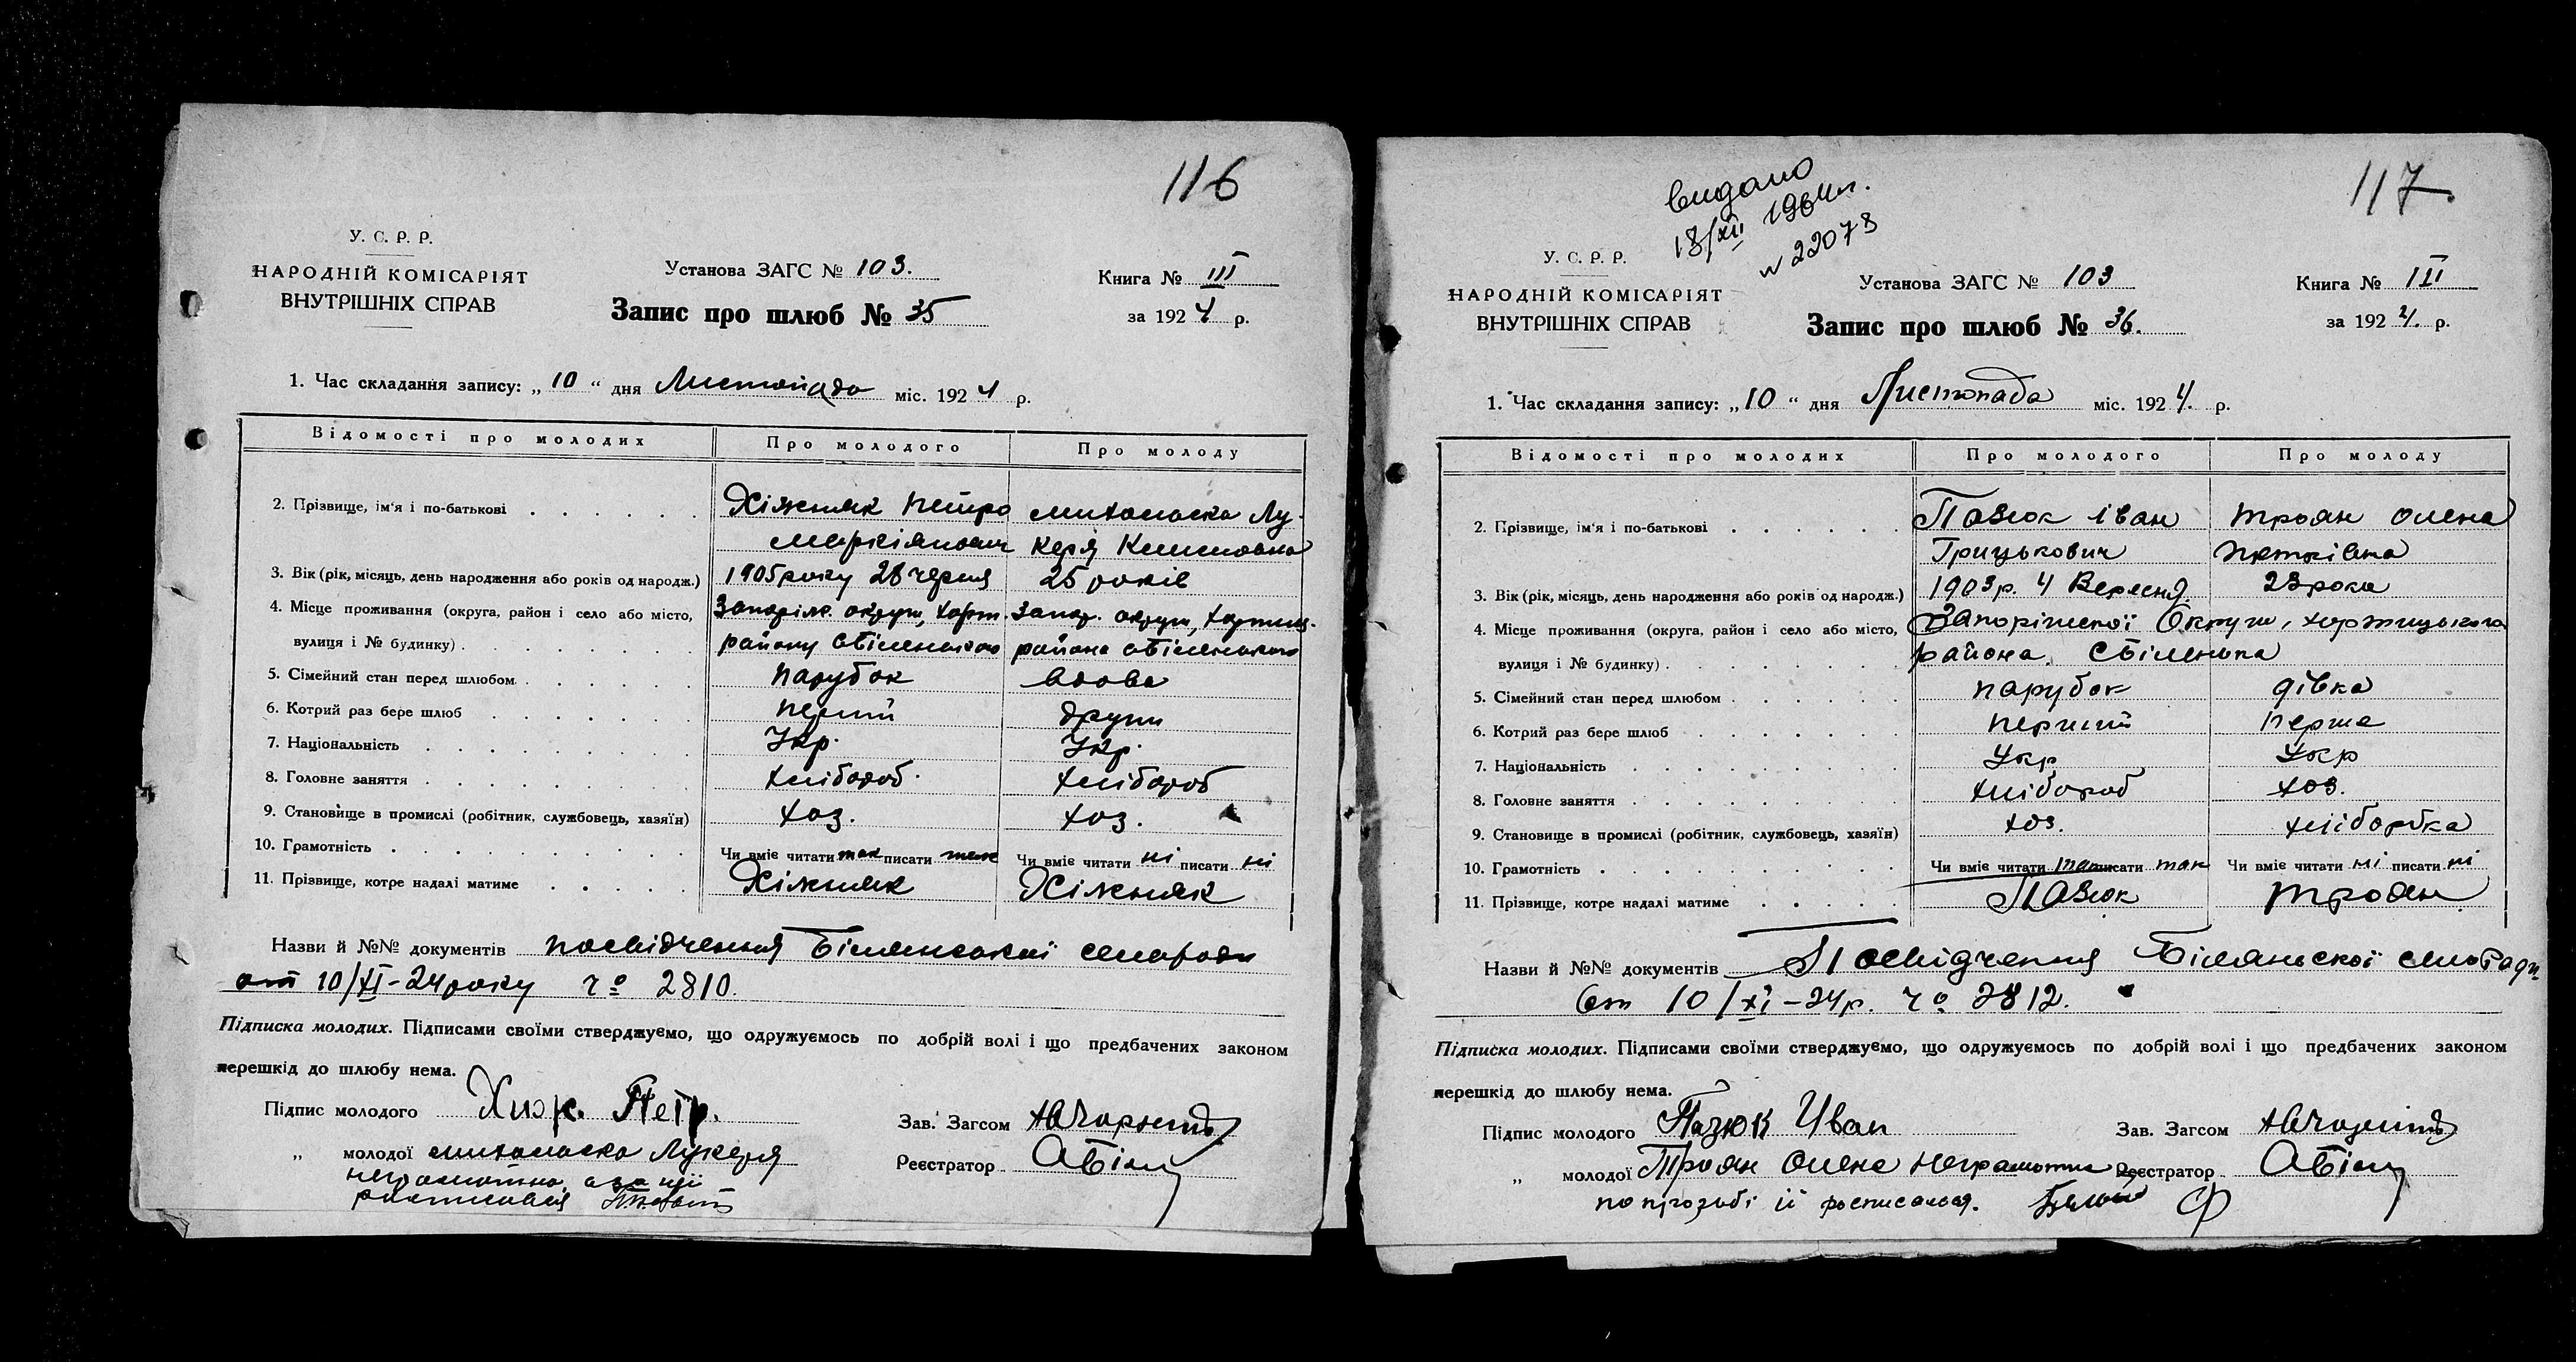 116
У. С. Р. Р.
НАРОДНІЙ КОМІСАРІЯТ
ВНУТРІШНІХ СПРАВ
Установа ЗАГС № 103.
Запис про шлюб № 35
Книга № III
за 1924 р.
1. Час складання запису: „10“ дня Листопада міс. 1924 р.
Відомості про молодих Про молодого Про молоду
2. Прізвище, ім'я і по-батькові Хіжняк Петро Лу-
керя
3. Вік (рік, місяць, день народження або років од народж.) 1905 року 28 червня 25 років
4. Місце проживання (округа, район і село або місто, Запоріж. округи, Хорт. Запор. округи,
вулиця і № будинку) району с Біленького района с Біленького
5. Сімейний стан перед шлюбом парубок вдова
6. Котрий раз бере шлюб перший други
7. Національність Укр. Укр.
8. Головне заняття хлібороб. хлібороб
9. Становище в промислі (робітник, службовець, хазяїн) хоз. хоз.
10. Грамотність Чи вміє читати так писати так Чи вміє читати ні писати ні
11. Прізвище, котре надалі матиме Хіжняк Хіжняк
Назви й №№ документів посвідчення Біленської сельради
от 10/XI-24 року чо 2810.
Підписка молодих. Підписами своїми стверджуємо, що одружуємось по добрій волі і що предбачених законом
перешкід до шлюбу нема.
Підпис молодого Хиж. Петр.
Зав. Загсом
„ молодої Лукеря
Реєстратор
неграмотна, а за неї
росписався
117
видано
18/XII 1964 р.
N 22073
У. С. Р. Р.
НАРОДНІЙ КОМІСАРІЯТ
ВНУТРІШНІХ СПРАВ
Установа ЗАГС № 103
Запис про шлюб № 36.
Книга № III
за 1924. р.
1. Час складання запису: „10“ дня Листопада міс. 1924. р.
Відомості про молодих Про молодого Про молоду
2. Прізвище, ім'я і по-батькові Пазюк Іван Троян Олена
Грицькович
3. Вік (рік, місяць, день народження або років од народж.) 1903 р. 4 Вересня. 23 рока
4. Місце проживання (округа, район і село або місто, Запоріжской Округи, Хортицького
вулиця і № будинку) района. с Біленька
5. Сімейний стан перед шлюбом парубок дівка
6. Котрий раз бере шлюб перший перша
7. Національність Укр Укр
8. Головне заняття хлібороб хоз.
9. Становище в промислі (робітник, службовець, хазяїн) хоз. хліборобка
10. Грамотність Чи вміє читати так писати так Чи вміє читати ні писати ні
11. Прізвище, котре надалі матиме Пазюк Троян
Назви й №№ документів Посвідчення Біляньскої
от 10/XI-24 р. чо 2812.
Підписка молодих. Підписами своїми стверджуємо, що одружуємось по добрій волі і що предбачених законом
перешкід до шлюбу нема.
Підпис молодого Пазюк Иван
Зав. Загсом
„ молодої Троян Олена неграмотна
Реєстратор
по прозьбі її росписалься.